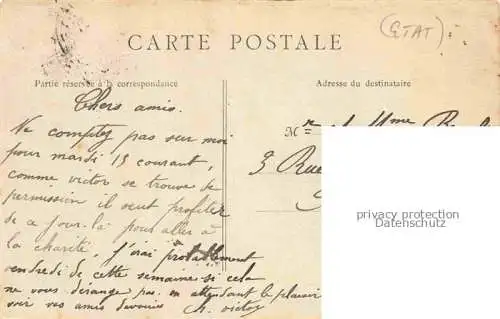 (ETAT)
CARTE POSTALE
Partie réservée à la correspondance
Adresse du destinataire
Chers amis.
Ne comptez pas sur moi
pour mardi 15 courant,
comme victor se trouve de
permission il veut profiter
de ce jour-là pour aller à
la charité, J'irai probablement
vendredi de cette semaine si cela
ne vous dérange pas. en attendant le plaisir
voir vos amis devoirs
h. victor
Mr Mme
3 Rue
privacy protection
Datenschutz